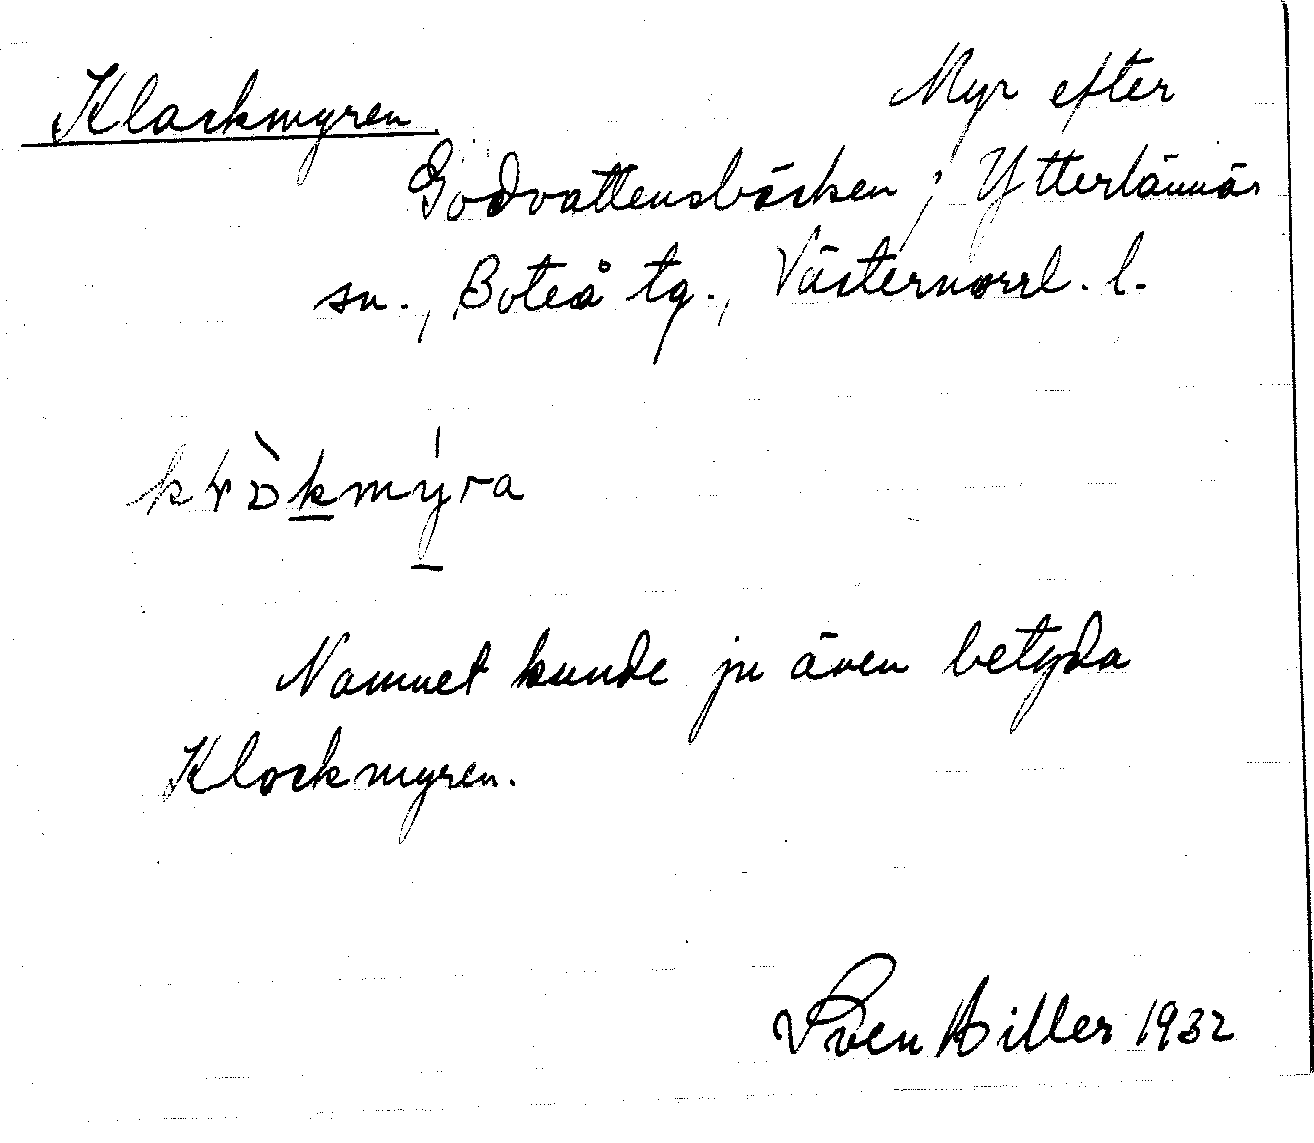 Klackmyren
Myr efter
Godvattensbäcken, Ytterlännäs
sn., Boteå tg., Västernorrl. l.
Namnet kunde ju även betyda
Klockmyren.
Sven Hiller 1932